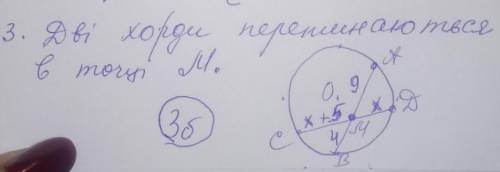 3. Дві хорди перетинаються
в точці М.
3б
A
O. 9
x + 5 x D
C 4 M
B